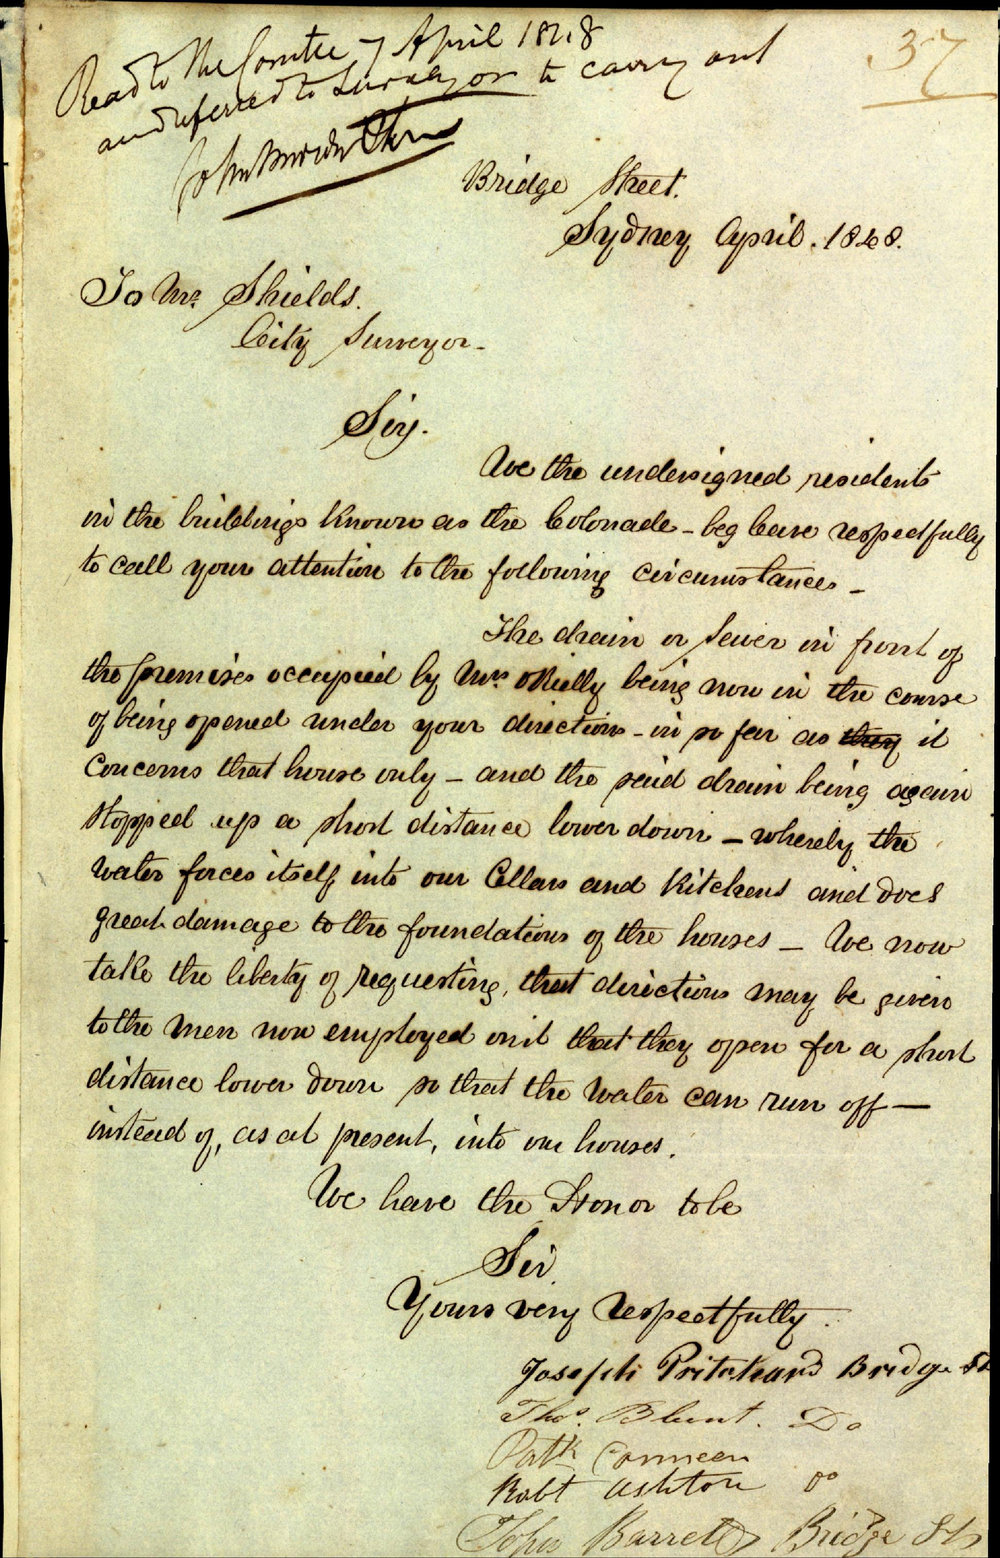 Read to the Comtee 7 April 1848
and referred to Surveyor to carry out
John
37
Bridge Street.
Sydney April. 1848.
To Mr. Shields.
City Surveyor -
Sir.
We the undersigned residents
in the buildings known as the Colonade - beg leave respectfully
to call your attention to the following circumstances -
The drain or sewer in front of
the premises occupied by Mrs. ORielly being now in the course
of being opened under your direction - in so far as they it
concerns that house only - and the said drain being again
stopped up a short distance lower down - whereby the
water forces itself into our Cellars and Kitchens and does
great damage to the foundations of the houses - We now
take the liberty of requesting, that directions may be given
to the men now employed on it that they open for a short
distance lower down so that the water can run off -
instead of, as at present, into our houses.
We have the Honor to be
Sir
Yours very respectfully.
Joseph Pritchard Bridge St
Thos. Blunt. Do
Patk
Robt Ashton Do
John Barrett Bridge St